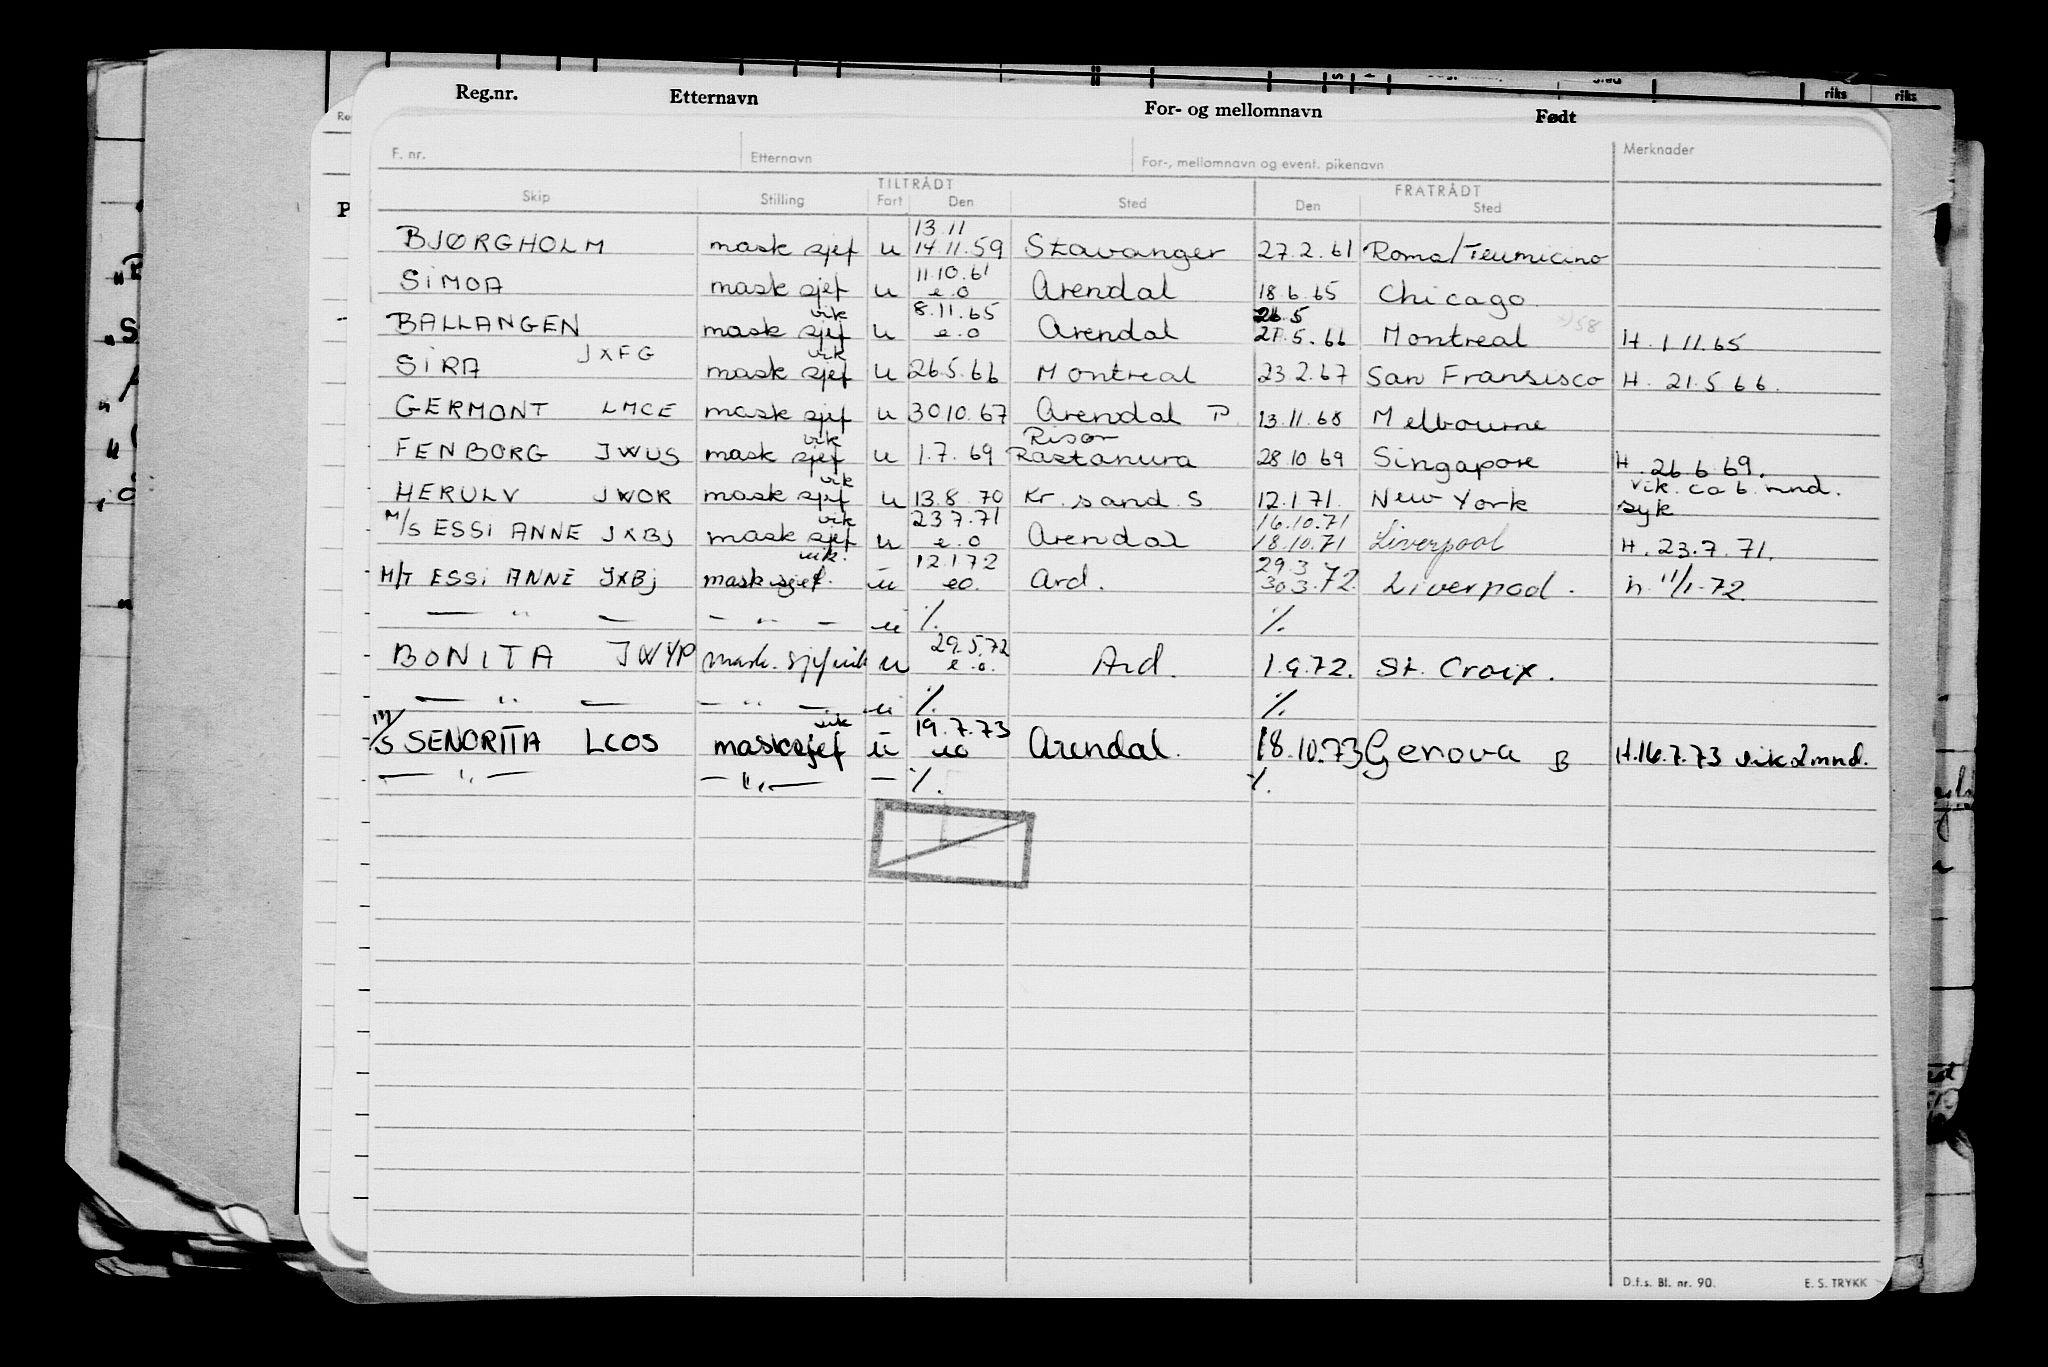 Reg.nr. Etternavn For- og mellomnavn Født
riks riks
F. nr. Etternavn For-, mellomnavn og event. pikenavn Merknader
TILTRÅDT FRATRÅDT
Skip Stilling Fart Den Sted Den Sted
13.11
BJØRGHOLM mask sjef u 14.11.59 Stavanger 27.2.61 Roma/Teumicino
11.10.61
SIMOA mask sjef u e.o Arendal 18.6.65 Chicago.
vik 8.11.65 26.5
BALLANGEN mask sjef u e.o Arendal 21.5.66 Montreal H. 1 11.65
JXFG vik
SIRA mask sjef u 26.5.66 Montreal 23 2.67 San Fransisco H. 21.5 66.
GERMONT LMCE mask sjef u 30 10.67 Arendal P. 13.11.68 Melbourne
vik Risør
FENBORG JWUS mask sjef u 1.7.69 Rastanura 28 10 69 Singapore H. 26.6 69.
vik vik. ca 6. mnd.
HERULV JWOR mask sjef u 13.8.70 Kr. sand. S 12.1 71. New York syk
vik 23 7.71 16.10.71
M/S ESSI ANNE JXBJ mask sjef u e.o Arendal 18.10.71 Liverpool H. 23.7.71.
vik. 12.1 72 29.3
M/T ESSI ANNE JXBJ mask sjef. u eo. Ard. 30 3.72. Liverpool. h. 11/1-72.
— " — — " — u ./. ./.
29.5.72
BONITA JWYP mask. sjef vik u e.o. Ard. 1.9.72. St. Croix.
— " — — " — u ./. ./.
vik 19.7.73
M/S SENORITA LCOS mask sjef u eo Arendal. 18.10.73 Genova B H.16.7.73 vik 2 mnd.
— " — — " — — ./. ./.
D.f.s. Bl. nr. 90. E. S. TRYKK